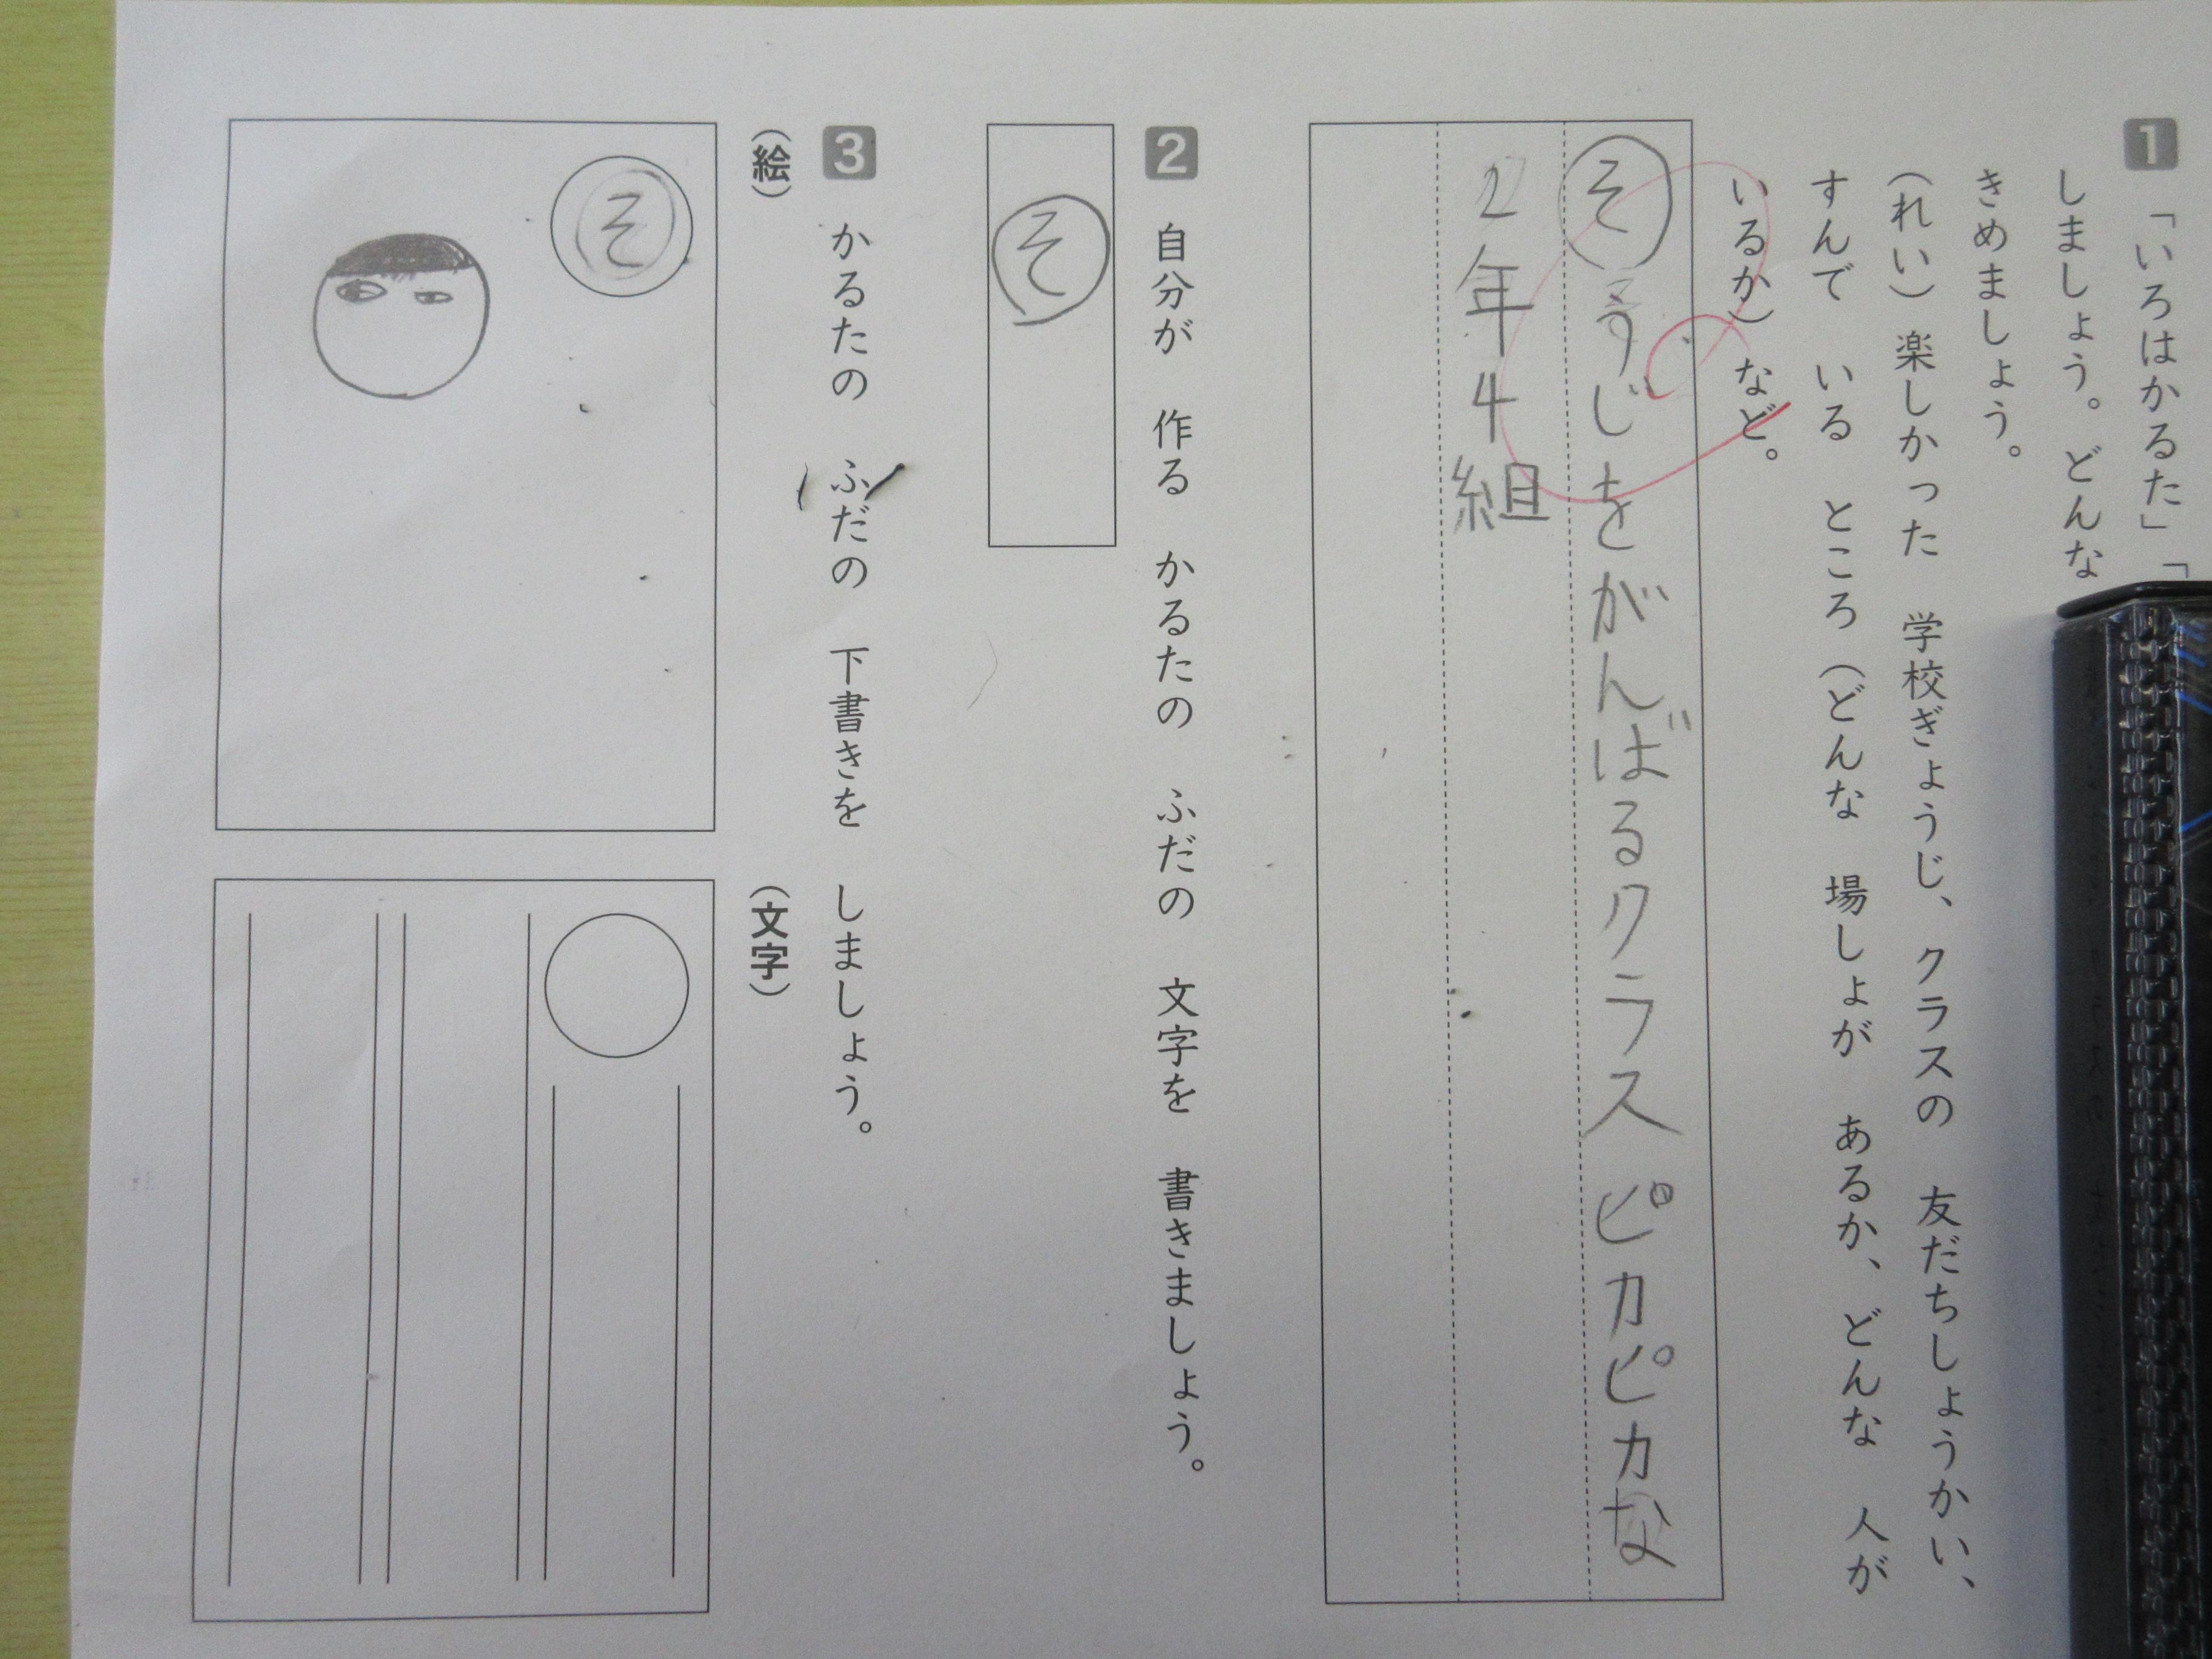 1 「いろはかるた」「
しましょう。どんな
きめましょう。
(れい) 楽しかった 学校ぎょうじ、クラスの 友だちしょうかい、
すんで いる ところ(どんな 場しょが あるか、どんな 人が
いるか) など。
そうじをがんばるクラスピカピカな
2年4組
2 自分が 作る かるたの ふだの 文字を 書きましょう。
そ
3 かるたの ふだの 下書きを しましょう。
(絵)
そ
(文字)